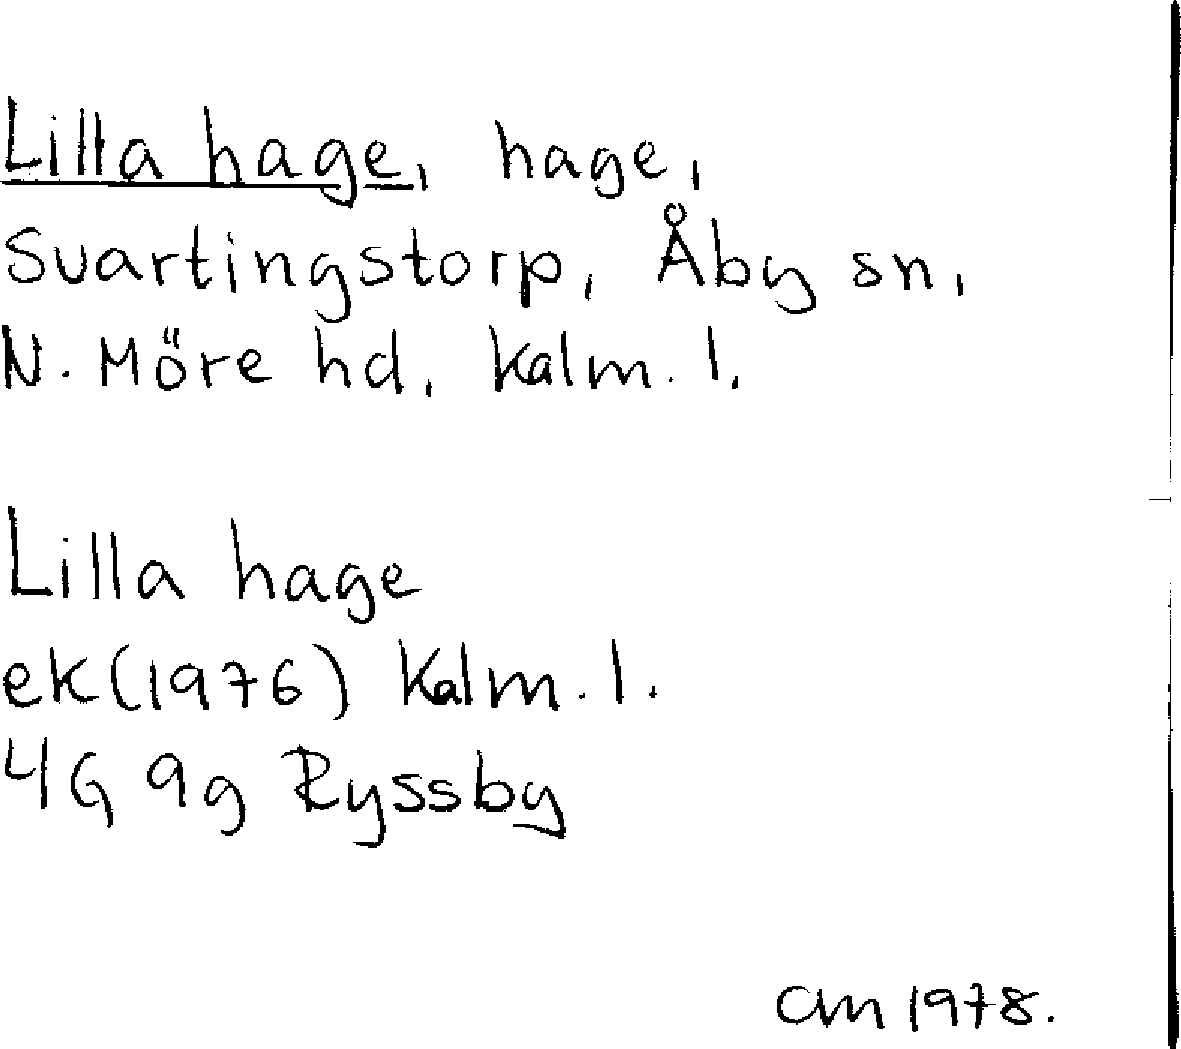 Lilla hage, hage,
Svartingstorp, Åby sn,
N. Möre hd, Kalm. l.
Lilla hage
ek (1976) Kalm. l.
4G 9g Ryssby
CM 1978.